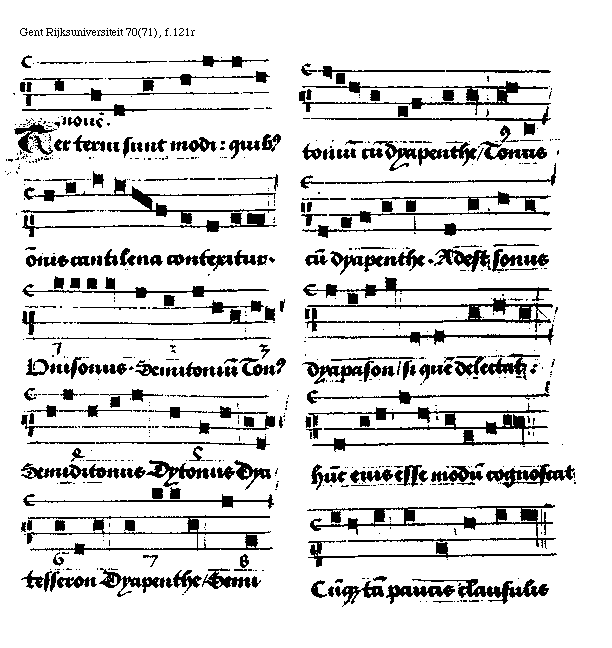 Gent Rijksuniversiteit 70(71), f.121r
nouē.
Ter terni sunt modi : quib9
ōnis cantilena contexitur.
7 2 3
Unisonus. Semitoniū Ton9
Semiditonus Dytonus Dya
6 7 8
tesseron Dyapenthe / Semi
9
toniū cū dyapenthe / Tonus
cū dyapenthe. Adest sonus
dyapason / si quē delectat :
hūc eius esse modū cognoscat
Cūq3 tā paucis clausulis